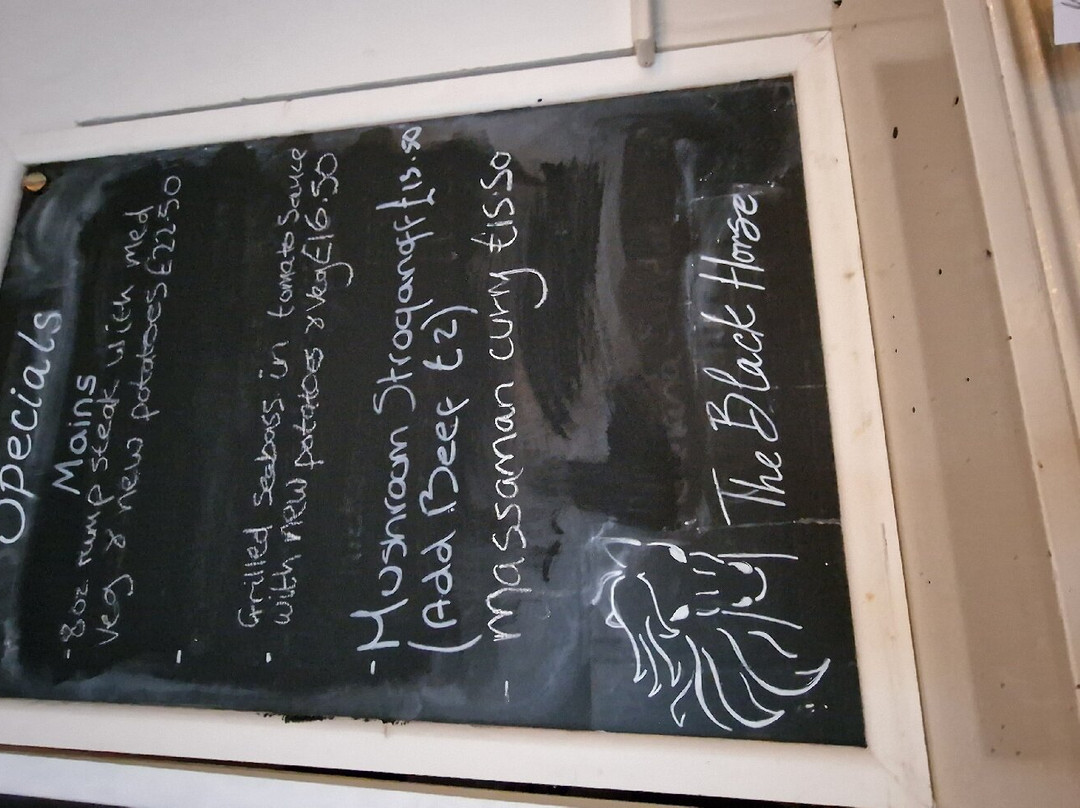 Specials
Mains
- 8oz rump steak with med
veg & new potatoes £22.50
-
- Grilled Seabass in tomato sauce
with new potatoes & veg £16.50
- Mushroom Stroganoff £13.50
(Add Beef £2)
- massaman curry £15.50
The Black Horse